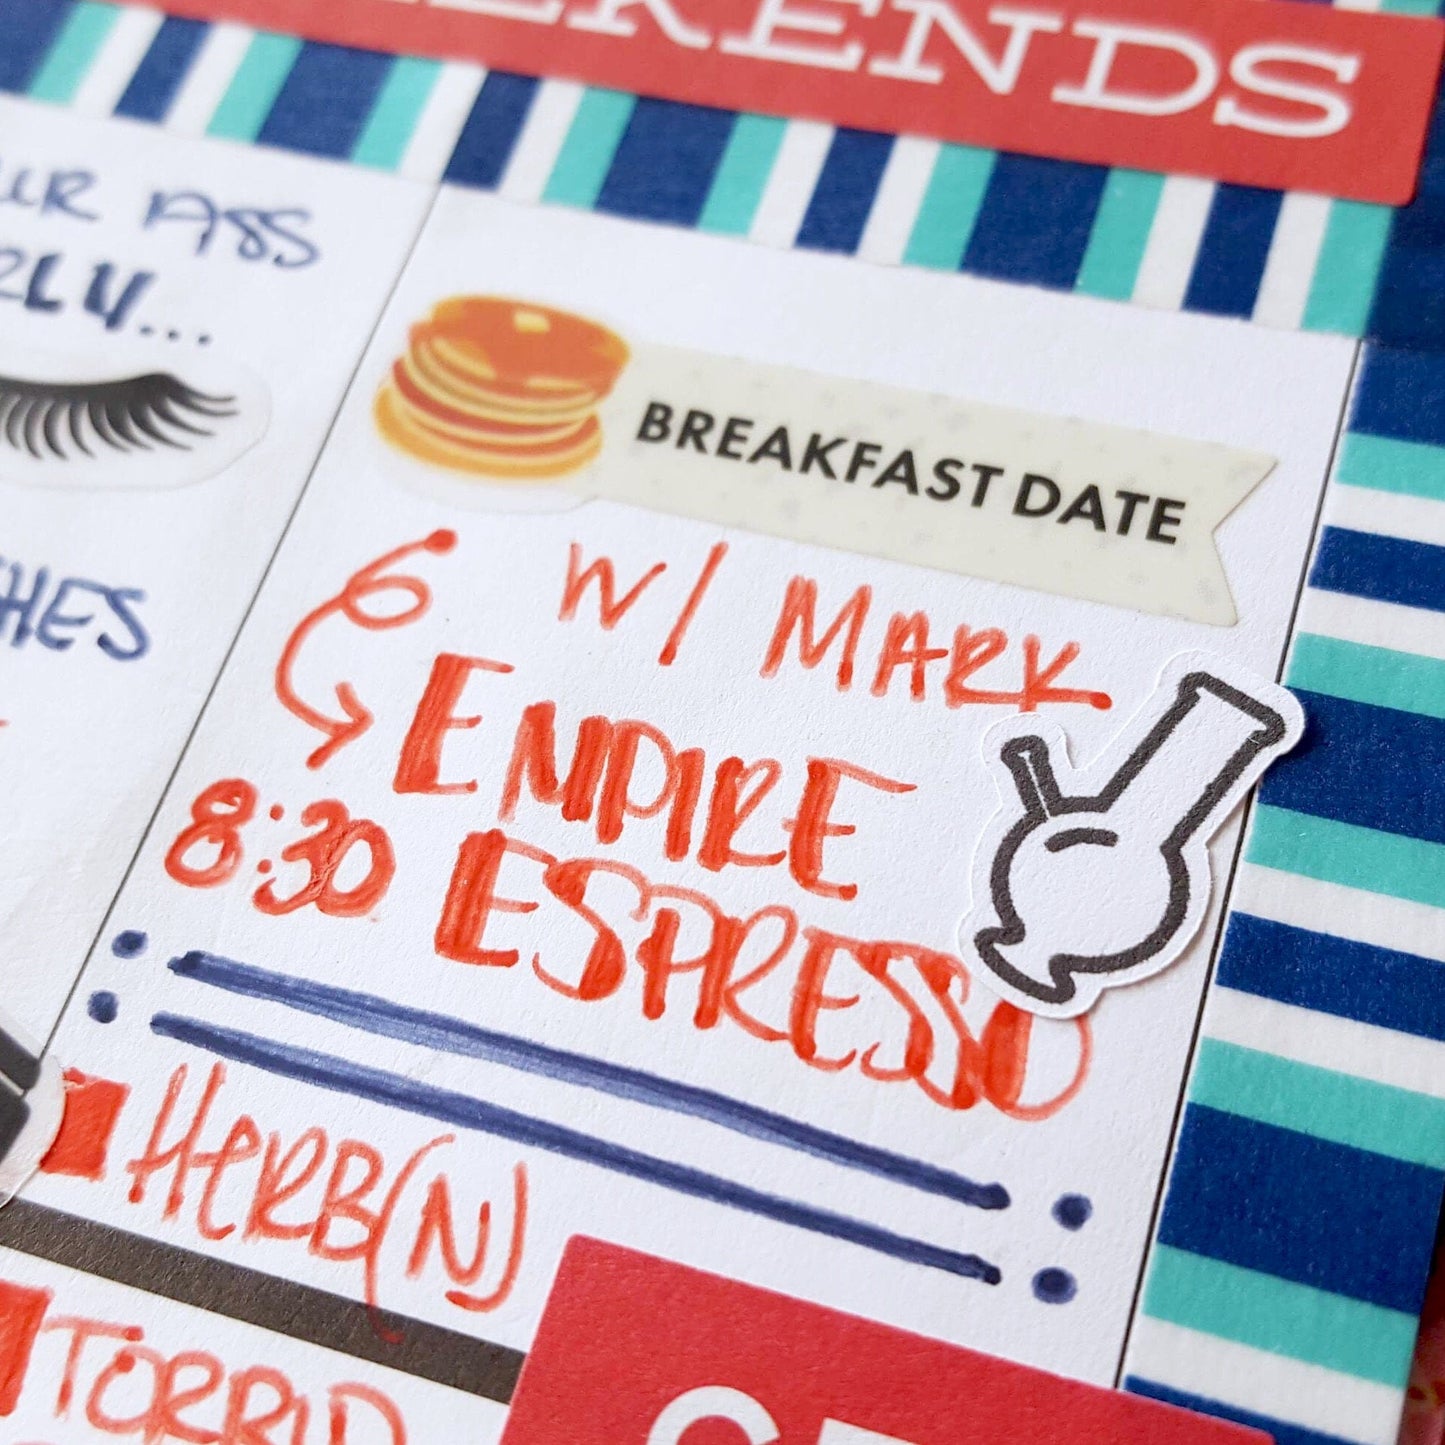 EKENDS
UR ASS
RLY...
HES
BREAKFAST DATE
W/ MARK
EMPIRE
8:30 ESPRESSO
HERB(N)
TORRID